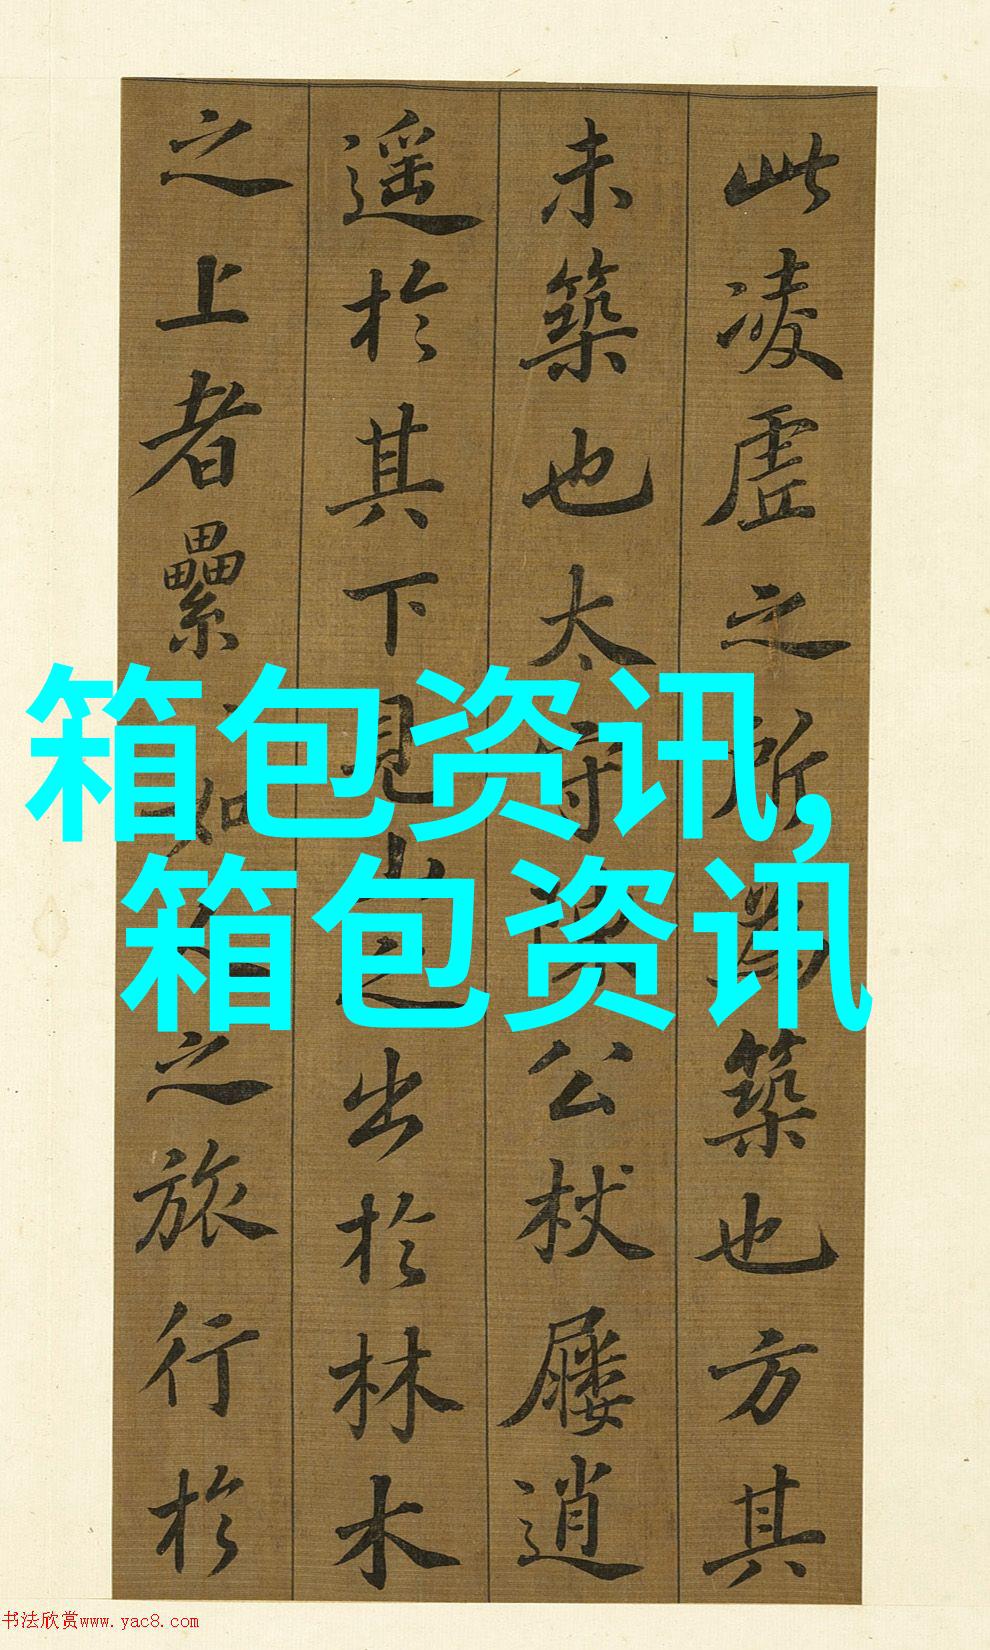 此凌虛之所為築也方其
未築也太守陳公杖屨逍
遥於其下見山之出於林木
之上者纍如人之旅行於
箱包资讯,
箱包资讯
书法欣赏www.yac8.com